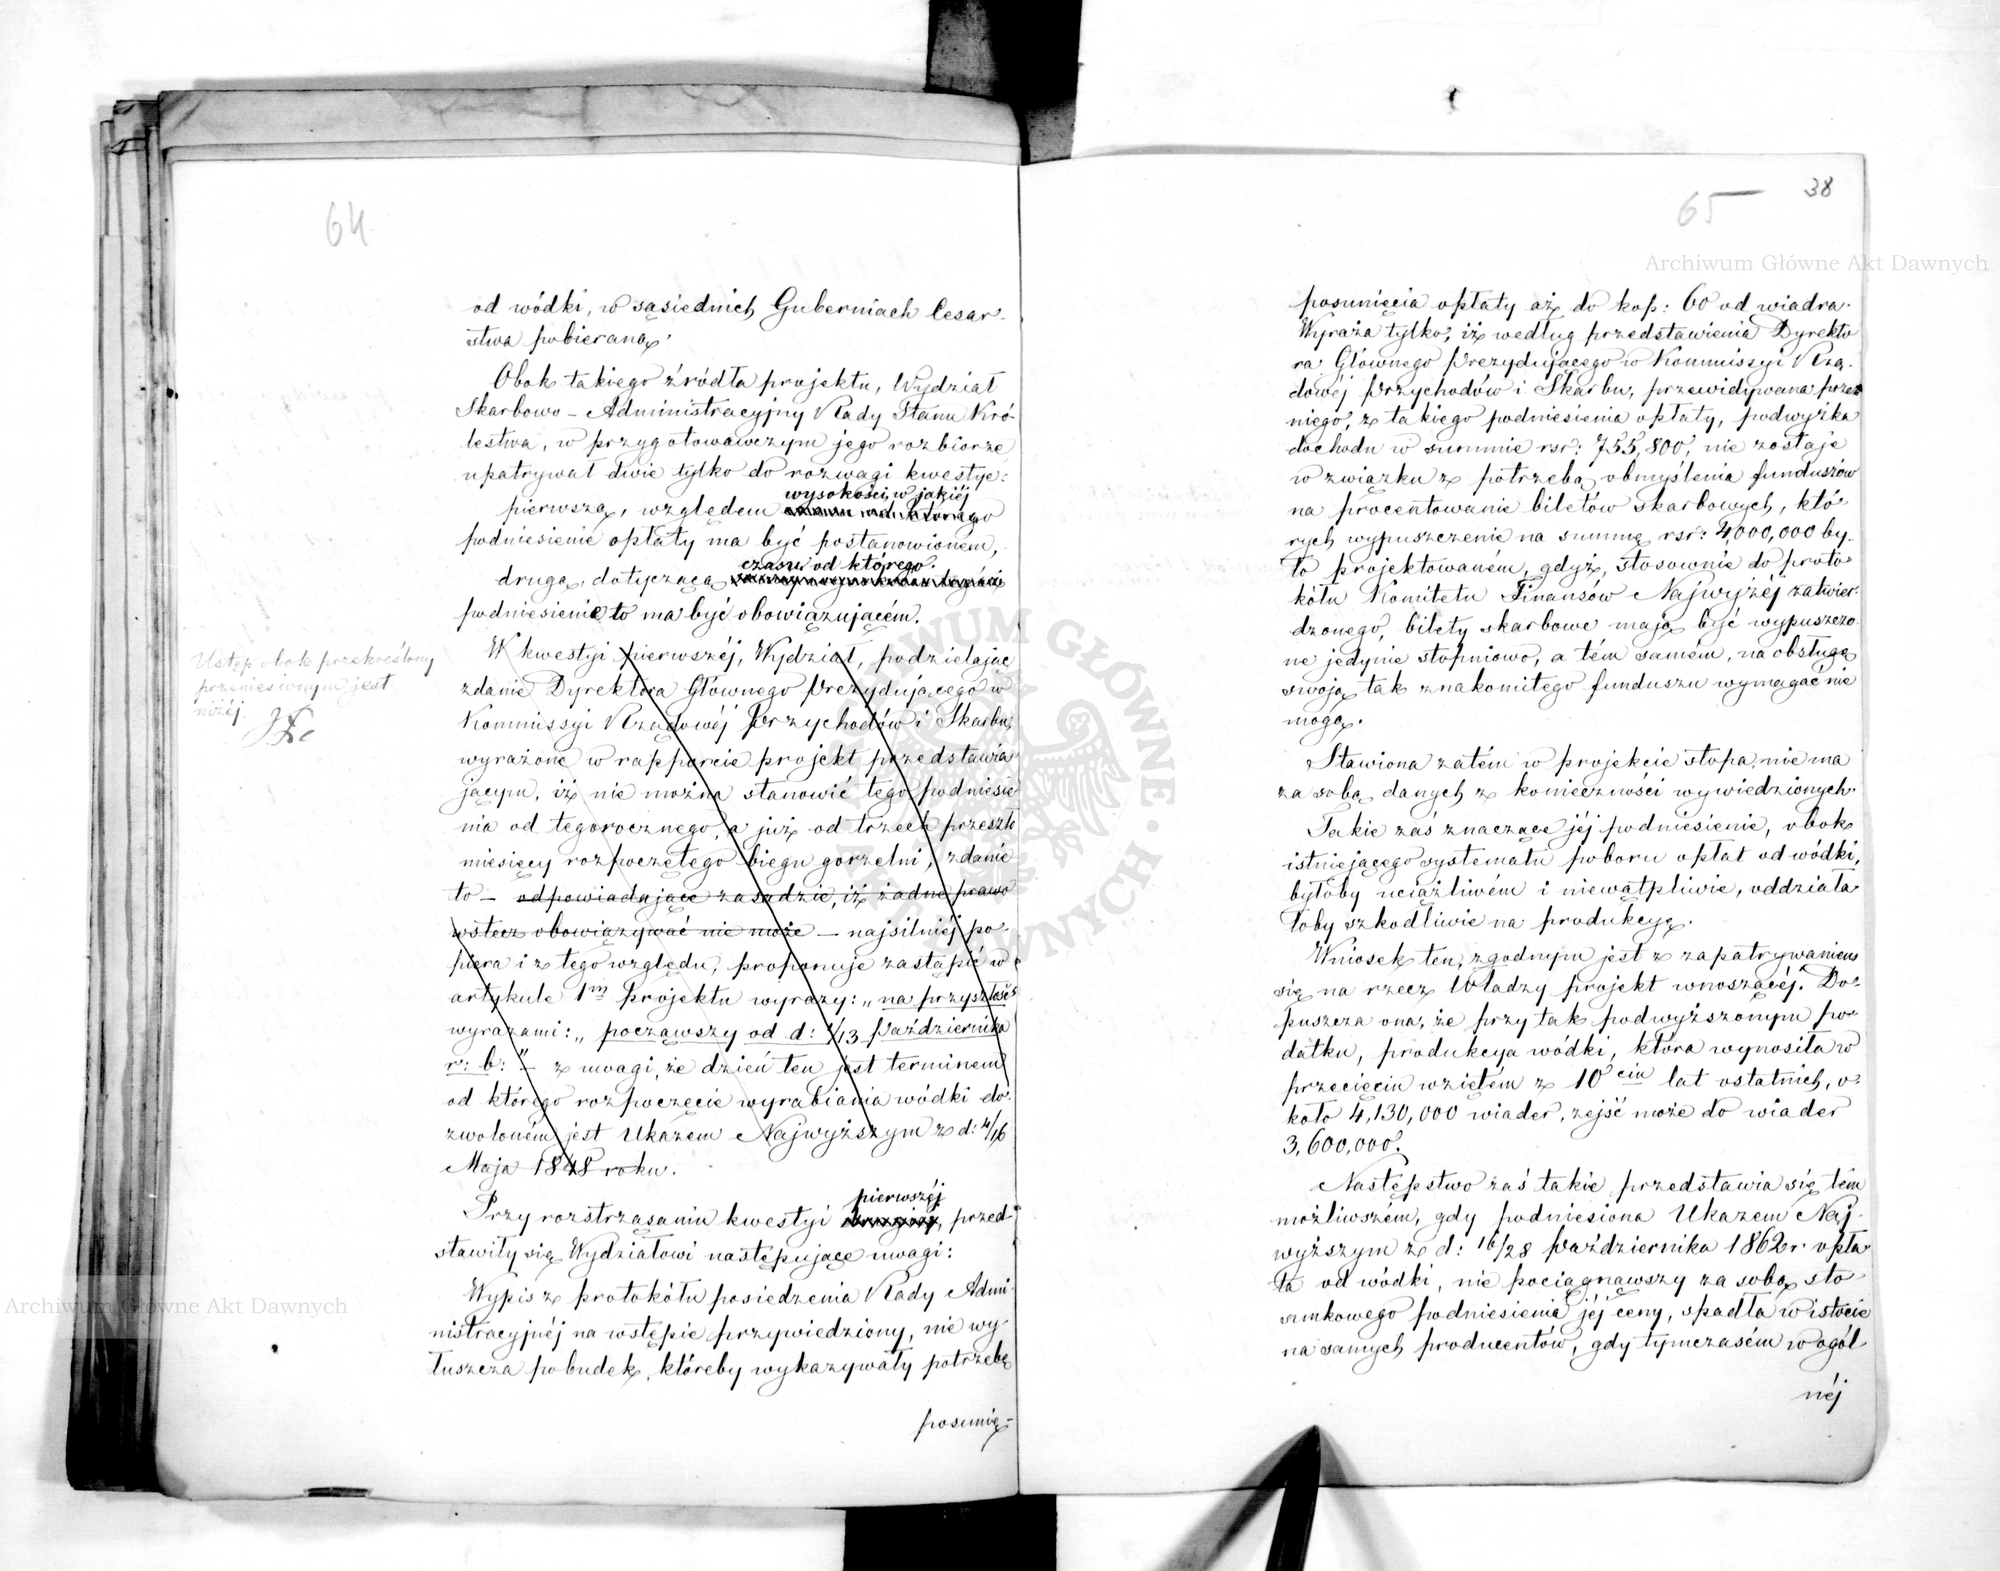 64
od wódki, w sąsiednich Guberniach Cesar-
stwa pobieraną.
Obok takiego źródła projektu, Wydział
Skarbowo-Administracyjny Rady Stanu Kró-
lestwa, w przygotowawczym jego rozbiorze
upatrywał dwie tylko do rozwagi kwestye:
wysokości, w jakiéj
pierwszą, względem
podniesienie opłaty ma być postanowioném,
czasu od którego.
drugą, dotyczącą
podniesienie to ma być obowiązującém.
Ustęp obok przekreślony
przeniesionym jest
niżéj.
W kwestyi pierwszéj, Wydział, podzielając
zdanie Dyrektora Głównego Prezydującego w
Kommissyi Rządowéj Przychodów i Skarbu,
wyrażone w rapporcie projekt przedstawia
jącym, iż nie można stanowić tego podniesie
nia od tegorocznego, a już od trzech przeszło
miesięcy rozpoczętego biegu gorzelni, zdanie
to – odpowiadające zasadzie, iż żadne prawo
wstecz obowiązywać nie może – najsilniéj po-
piera i z tego względu, proponuje zastąpić w
artykule 1m projektu wyrazy: „na przyszłość"
wyrazami: „począwszy od d: 1/13 Października
r: b:" – z uwagi, że dzień ten jest terminem
od którego rozpoczęcie wyrabiania wódki do-
zwoloném jest Ukazem Najwyższym z d: 4/16
Maja 1848 roku.
pierwszéj
Przy rozstrząsaniu kwestyi drugiéj, przed-
stawiły się Wydziałowi następujące uwagi:
Wypis z protokółu posiedzenia Rady Admi-
nistracyjnéj na wstępie przywiedziony, nie wy-
łuszcza pobudek, któreby wykazywały potrzebę
posunię-
65
38
posunięcia opłaty aż do kop: 60 od wiadra.
Wyraża tylko, iż według przedstawienia Dyrekto
ra Głównego Prezydującego w Kommissyi Rzą-
dowéj Przychodów i Skarbu, przewidywana przez
niego, z takiego podniesienia opłaty, podwyżka
dochodu w summie rsr: 755,800, nie zostaje
w związku z potrzebą obmyślenia funduszów
na procentowanie biletów skarbowych, któ-
rych wypuszczenie na summę rsr: 4,000,000 by-
ło projektowaném, gdyż, stosownie do proto-
kółu Komitetu Finansów Najwyżéj zatwier-
dzonego, bilety skarbowe mają być wypuszczo-
ne jedynie stopniowo, a tém samém, na obsługę
swoją tak znakomitego funduszu wymagać nie
mogą.
Stawiona zatém w projekcie stopa, nie ma
za sobą danych z konieczności wywiedzionych.
Takie zaś znaczące jéj podniesienie, obok
istniejącego systematu poboru opłat od wódki,
byłoby uciążliwém i niewątpliwie, oddziała-
łoby szkodliwie na produkcyę.
Wniosek ten, zgodnym jest z zapatrywaniem
się na rzecz Władzy projekt wnoszącéj. Do-
puszcza ona, że przy tak podwyższonym po-
datku, produkcya wódki, która wynosiła w
przecięciu wziętém z 10ciu lat ostatnich, o-
koło 4,130,000 wiader, zejść może do wiader
3,600,000.
Następstwo zaś takie, przedstawia się tém
możliwszém, gdy podniesiona Ukazem Naj-
wyższym z d: 16/28 Października 1862 r. opła-
ta od wódki, nie pociągnąwszy za sobą sto-
sunkowego podniesienia jéj ceny, spadła w istocie
na samych producentów, gdy tymczasém w ogól
néj
Archiwum Główne Akt Dawnych
Archiwum Główne Akt Dawnych
ARCHIWUM GŁÓWNE AKT DAWNYCH